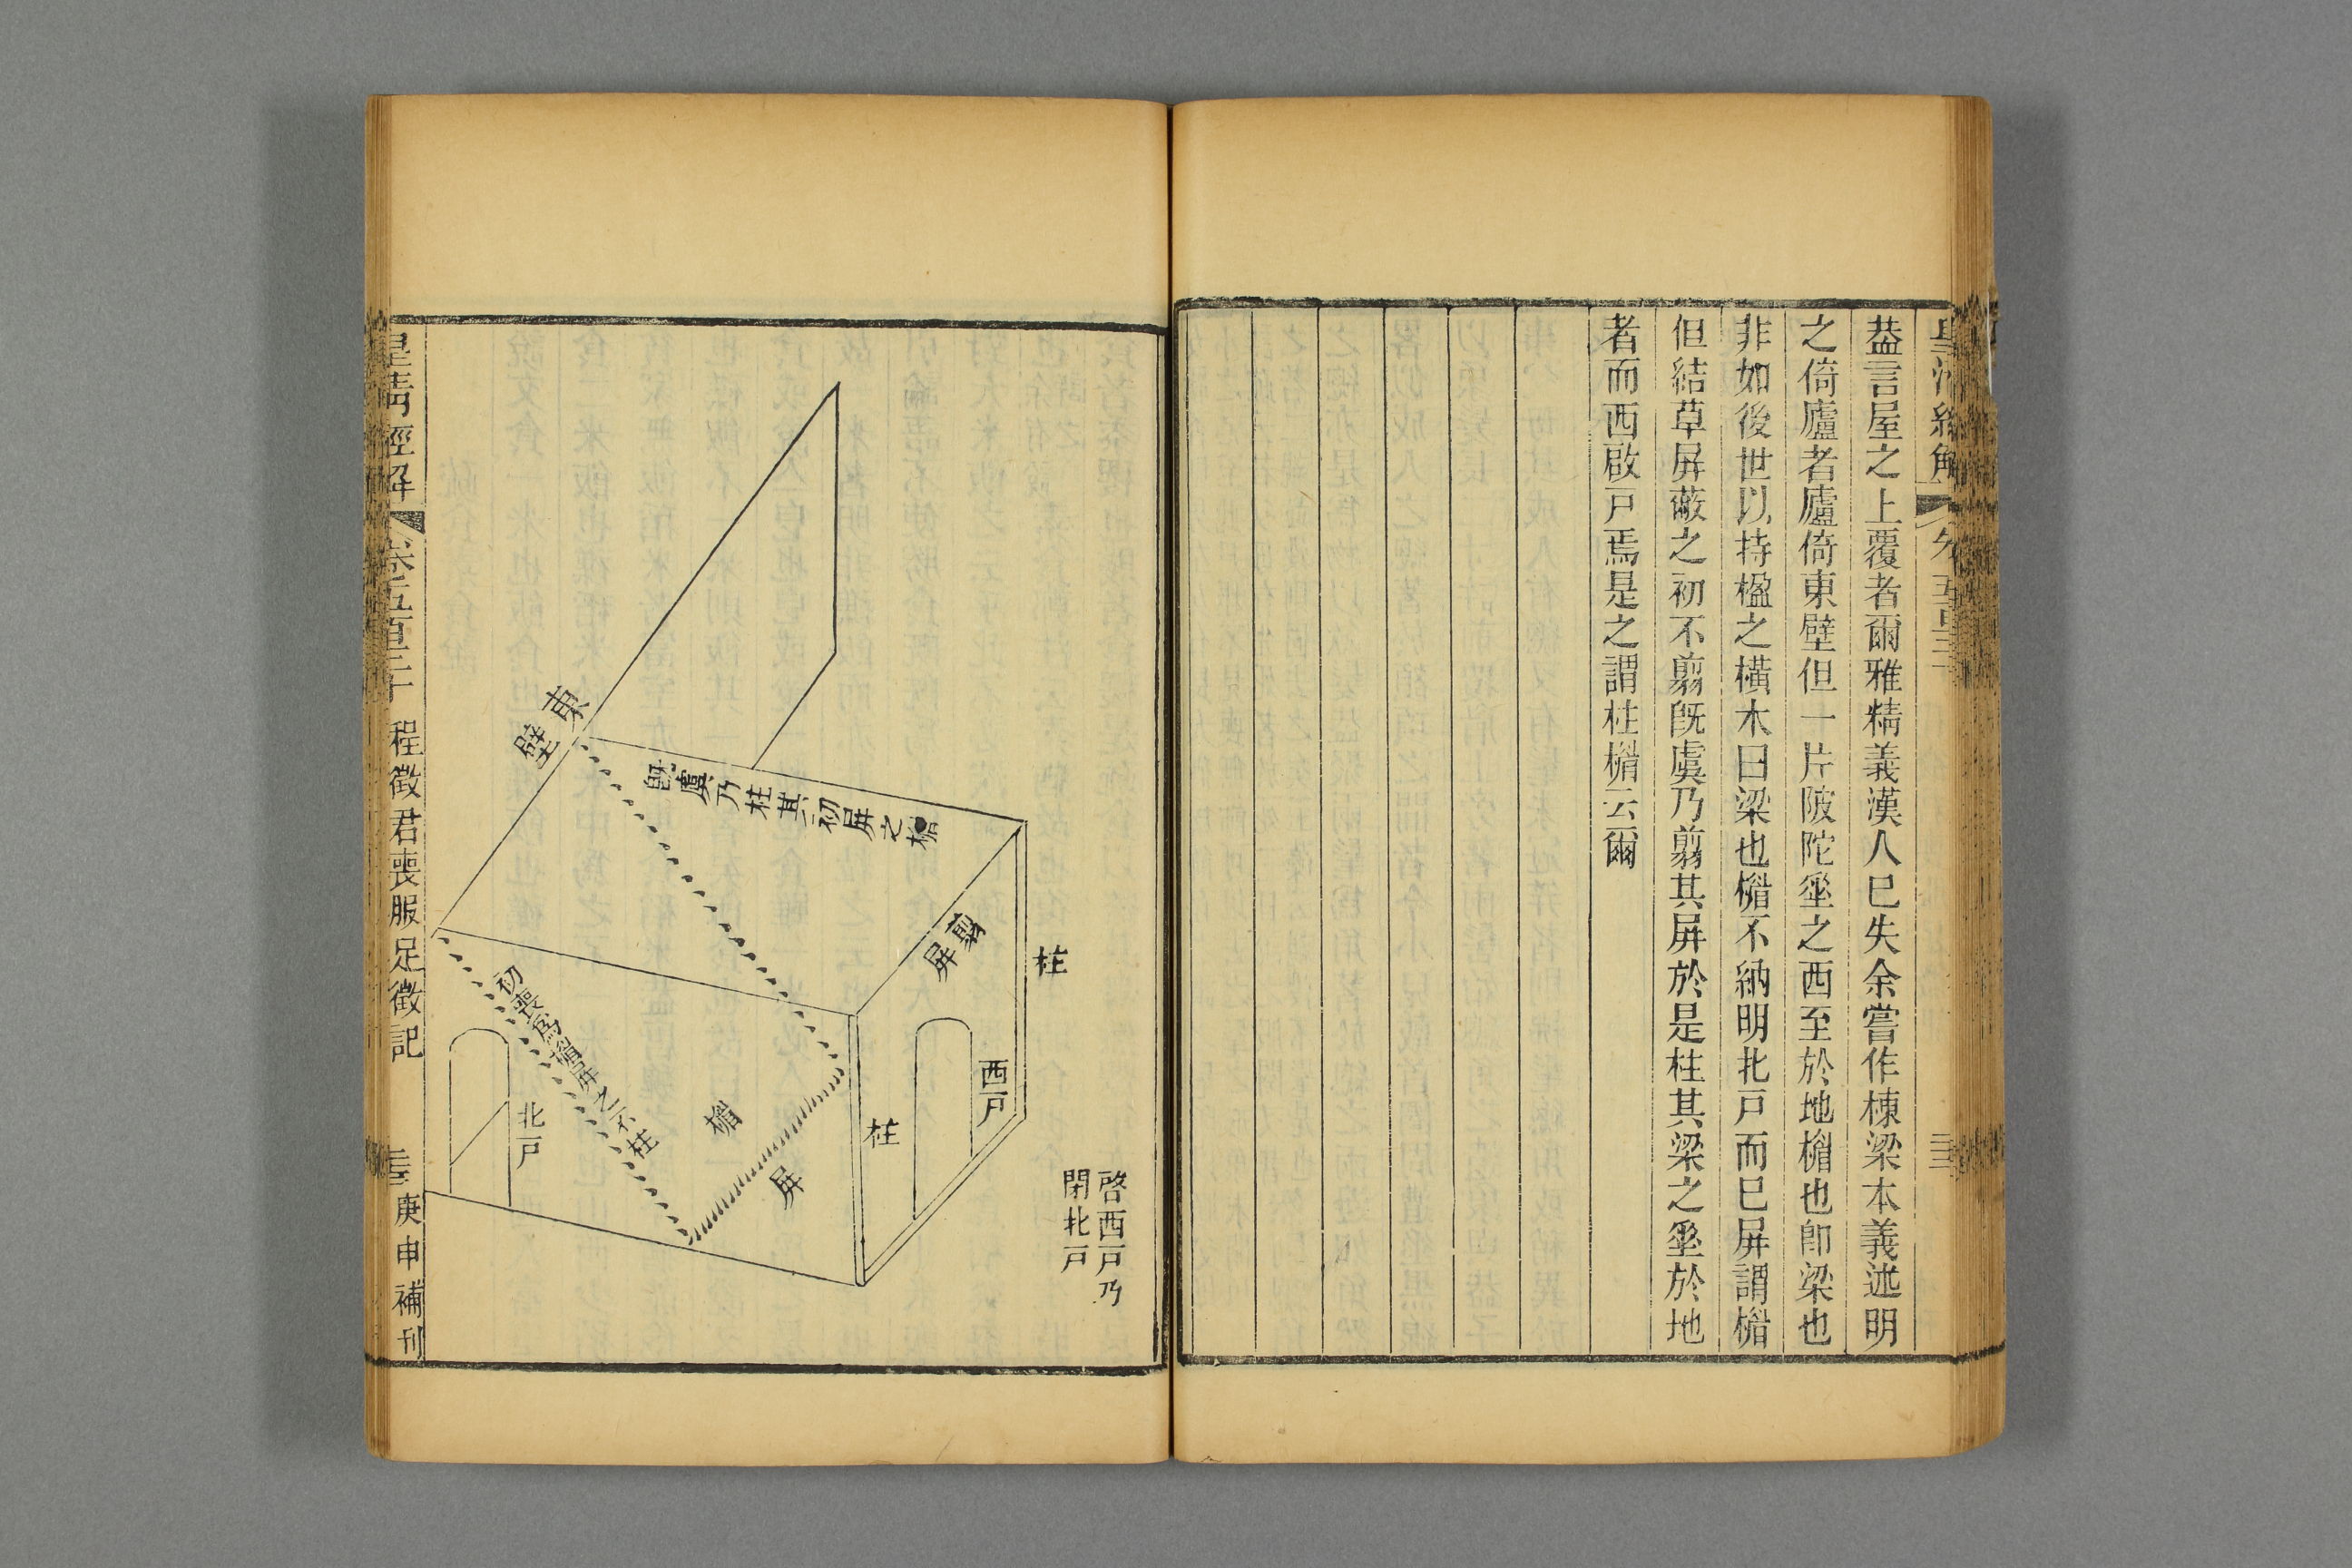 皇清經解
卷五百三十
三
葢言屋之上覆者爾雅精義漢人已失余嘗作棟梁本義述明
之倚廬者廬倚東壁但一片陂陀坙之西至於地楣也卽梁也
非如後世以持楹之橫木曰梁也楣不納明北戸而已屏謂楣
但結草屏蔽之初不翦旣虞乃翦其屏於是柱其梁之坙於地
者而西啟戸焉是之謂柱楣云爾
啓西戸乃
閉北戸
柱
西戸
翦屏
柱
旣虞乃柱其初屏之楣
東壁
楣
屏
初喪爲楣屏之不柱
北戸
皇清經解
卷五百三十
程徵君喪服足徵記
三
庚申補刊